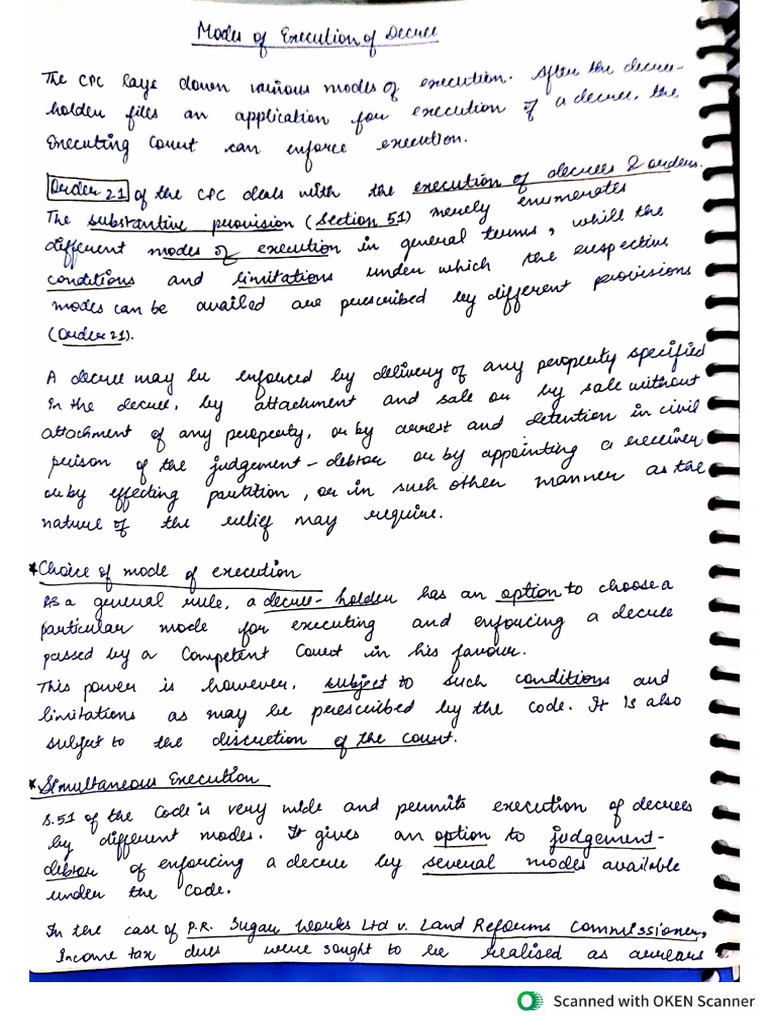 Modes of Execution of Decree
The CPC lays down various modes of execution. After the decree-
holder files an application for execution of a decree, the
Executing Court can enforce execution.
Order 21 of the CPC deals with the execution of decrees & orders.
The substantive provision (Section 51) merely enumerates
different modes of execution in general terms, while the
conditions and limitations under which the respective
modes can be availed are prescribed by different provisions
(Order 21).
A decree may be enforced by delivery of any property specified
in the decree, by attachment and sale or by sale without
attachment of any property, or by arrest and detention in civil
prison of the judgement-debtor or by appointing a receiver
or by effecting partition, or in such other manner as the
nature of the relief may require.
*Choice of mode of execution
As a general rule, a decree-holder has an option to choose a
particular mode for executing and enforcing a decree
passed by a Competent Court in his favour.
This power is however, subject to such conditions and
limitations as may be prescribed by the code. It is also
subject to the discretion of the court.
*Simultaneous Execution
S.51 of the Code is very wide and permits execution of decrees
by different modes. It gives an option to judgement-
debtor of enforcing a decree by several modes available
under the Code.
In the case of P.R. Sugar Works Ltd v. Land Reforms Commissioner,
Income tax dues were sought to be realised as arrears
Scanned with OKEN Scanner